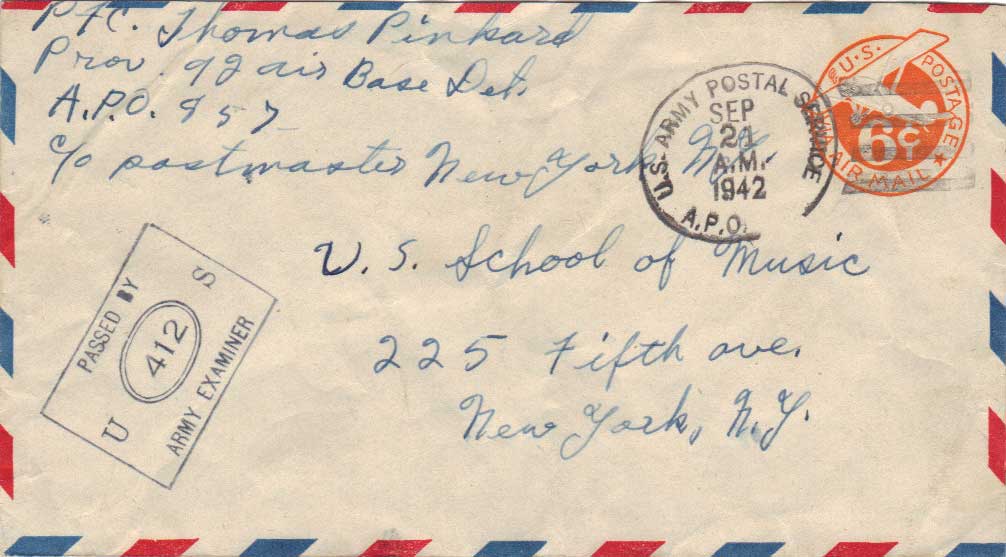 Pfc. Thomas Pinkard
Prov. 92 air Base Det.
A.P.O. 857
c/o postmaster New York N.Y.
U.S. ARMY POSTAL SERVICE
SEP
21
A.M.
1942
A.P.O.
U.S. POSTAGE
6¢
VIA AIR MAIL
U.S. School of Music
225 Fifth ave.
New York, N.Y.
PASSED BY
U 412 S
ARMY EXAMINER